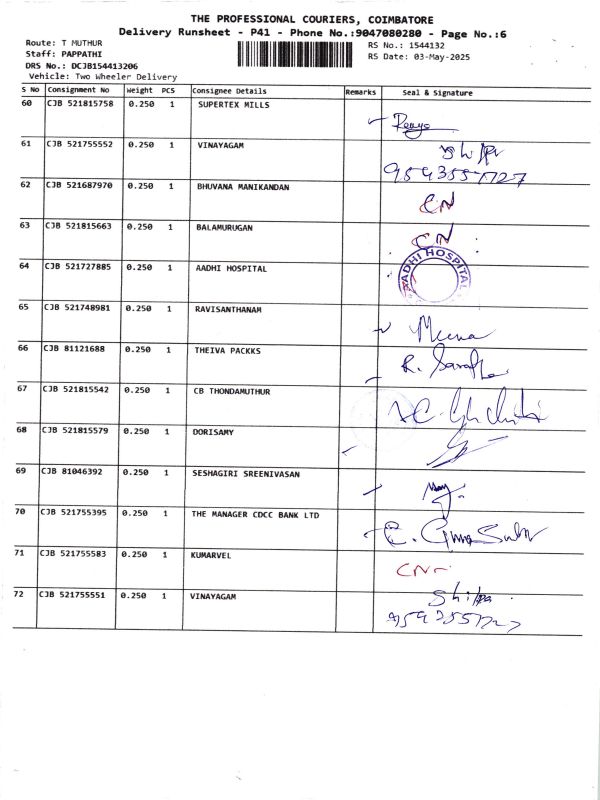 THE PROFESSIONAL COURIERS, COIMBATORE
Delivery Runsheet - P41 - Phone No.:9047080280 - Page No.:6
Route: T MUTHUR
Staff: PAPPATHI
DRS No.: DCJB154413206
Vehicle: Two Wheeler Delivery
RS No.: 1544132
RS Date: 03-May-2025
S No Consignment No Weight PCS Consignee Details Remarks Seal & Signature
60 CJB 521815758 0.250 1 SUPERTEX MILLS
61 CJB 521755552 0.250 1 VINAYAGAM
62 CJB 521687970 0.250 1 BHUVANA MANIKANDAN CN
63 CJB 521815663 0.250 1 BALAMURUGAN CN
64 CJB 521727885 0.250 1 AADHI HOSPITAL AADHI HOSPITAL
65 CJB 521748981 0.250 1 RAVISANTHANAM Meena
66 CJB 81121688 0.250 1 THEIVA PACKKS R.
67 CJB 521815542 0.250 1 CB THONDAMUTHUR
68 CJB 521815579 0.250 1 DORISAMY
69 CJB 81046392 0.250 1 SESHAGIRI SREENIVASAN
70 CJB 521755395 0.250 1 THE MANAGER CDCC BANK LTD
71 CJB 521755583 0.250 1 KUMARVEL CN
72 CJB 521755551 0.250 1 VINAYAGAM Shilpa